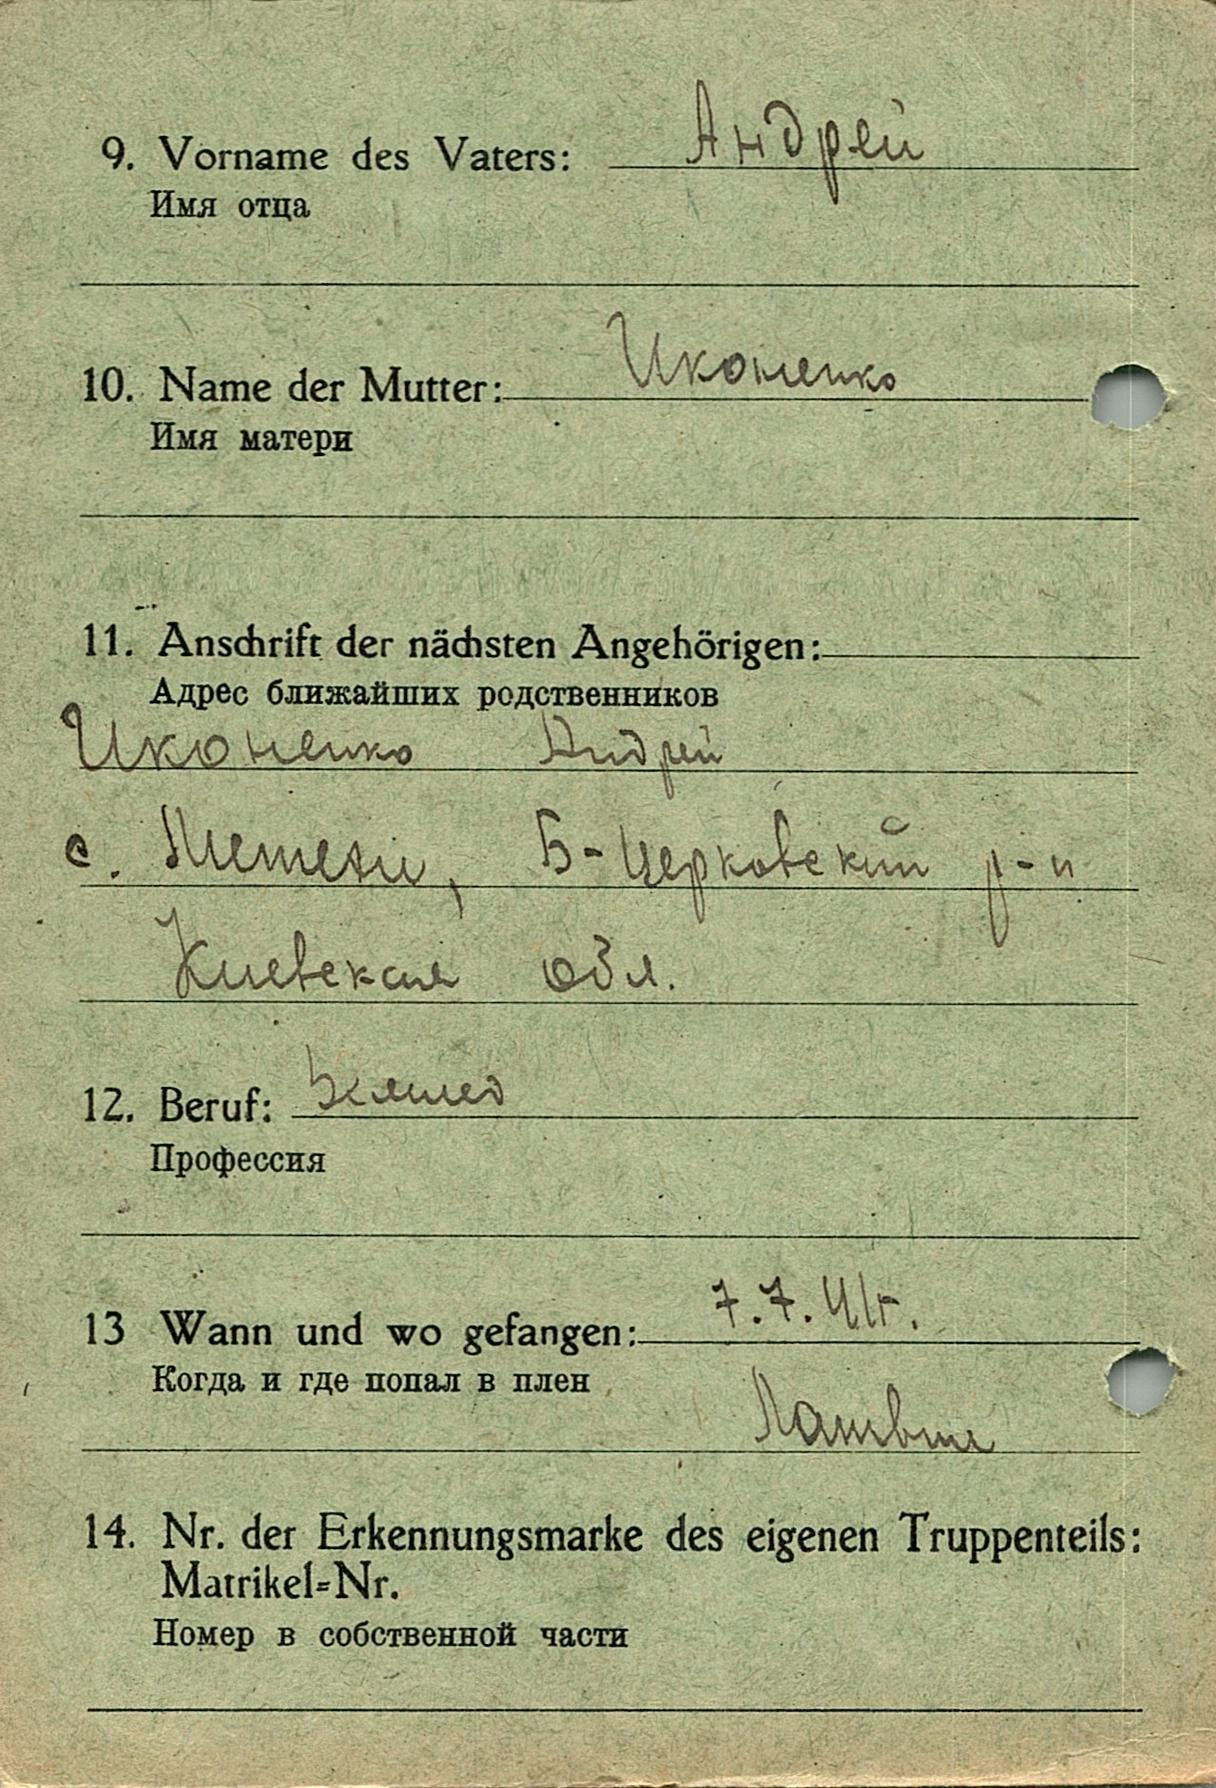 9. Vorname des Vaters: Андрей
Имя отца
10. Name der Mutter: Иконенко
Имя матери
11. Anschrift der nächsten Angehörigen:
Адрес ближайших родственников
Иконенко Андрей
с. Шепели, Б-Церковский р-н
Киевская обл.
12. Beruf:
Профессия
13 Wann und wo gefangen: 7.7.41г.
Когда и где попал в плен
Латвия
14. Nr. der Erkennungsmarke des eigenen Truppenteils:
Matrikel=Nr.
Номер в собственной части